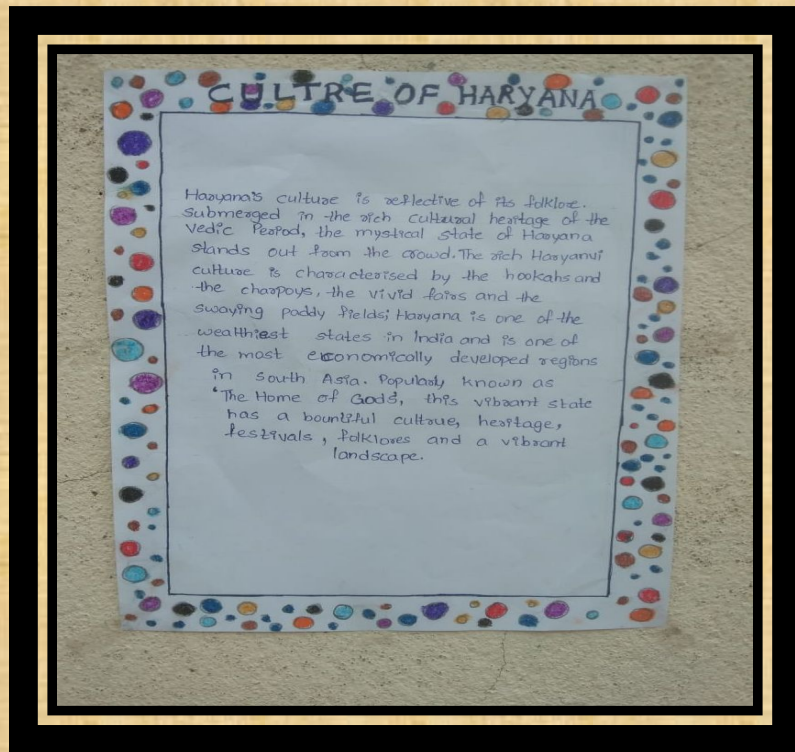 CULTRE OF HARYANA
Haryana's culture is reflective of its folklore.
Submerged in the rich cultural heritage of the
Vedic Period, the mystical state of Haryana
stands out from the crowd. The rich Haryanvi
culture is characterised by the hookahs and
the charpoys, the vivid fairs and the
swaying paddy fields; Haryana is one of the
wealthiest states in India and is one of
the most economically developed regions
in South Asia. Popularly known as
'The Home of Gods', this vibrant state
has a bountiful cultrue, heritage,
festivals, folklores and a vibrant
landscape.